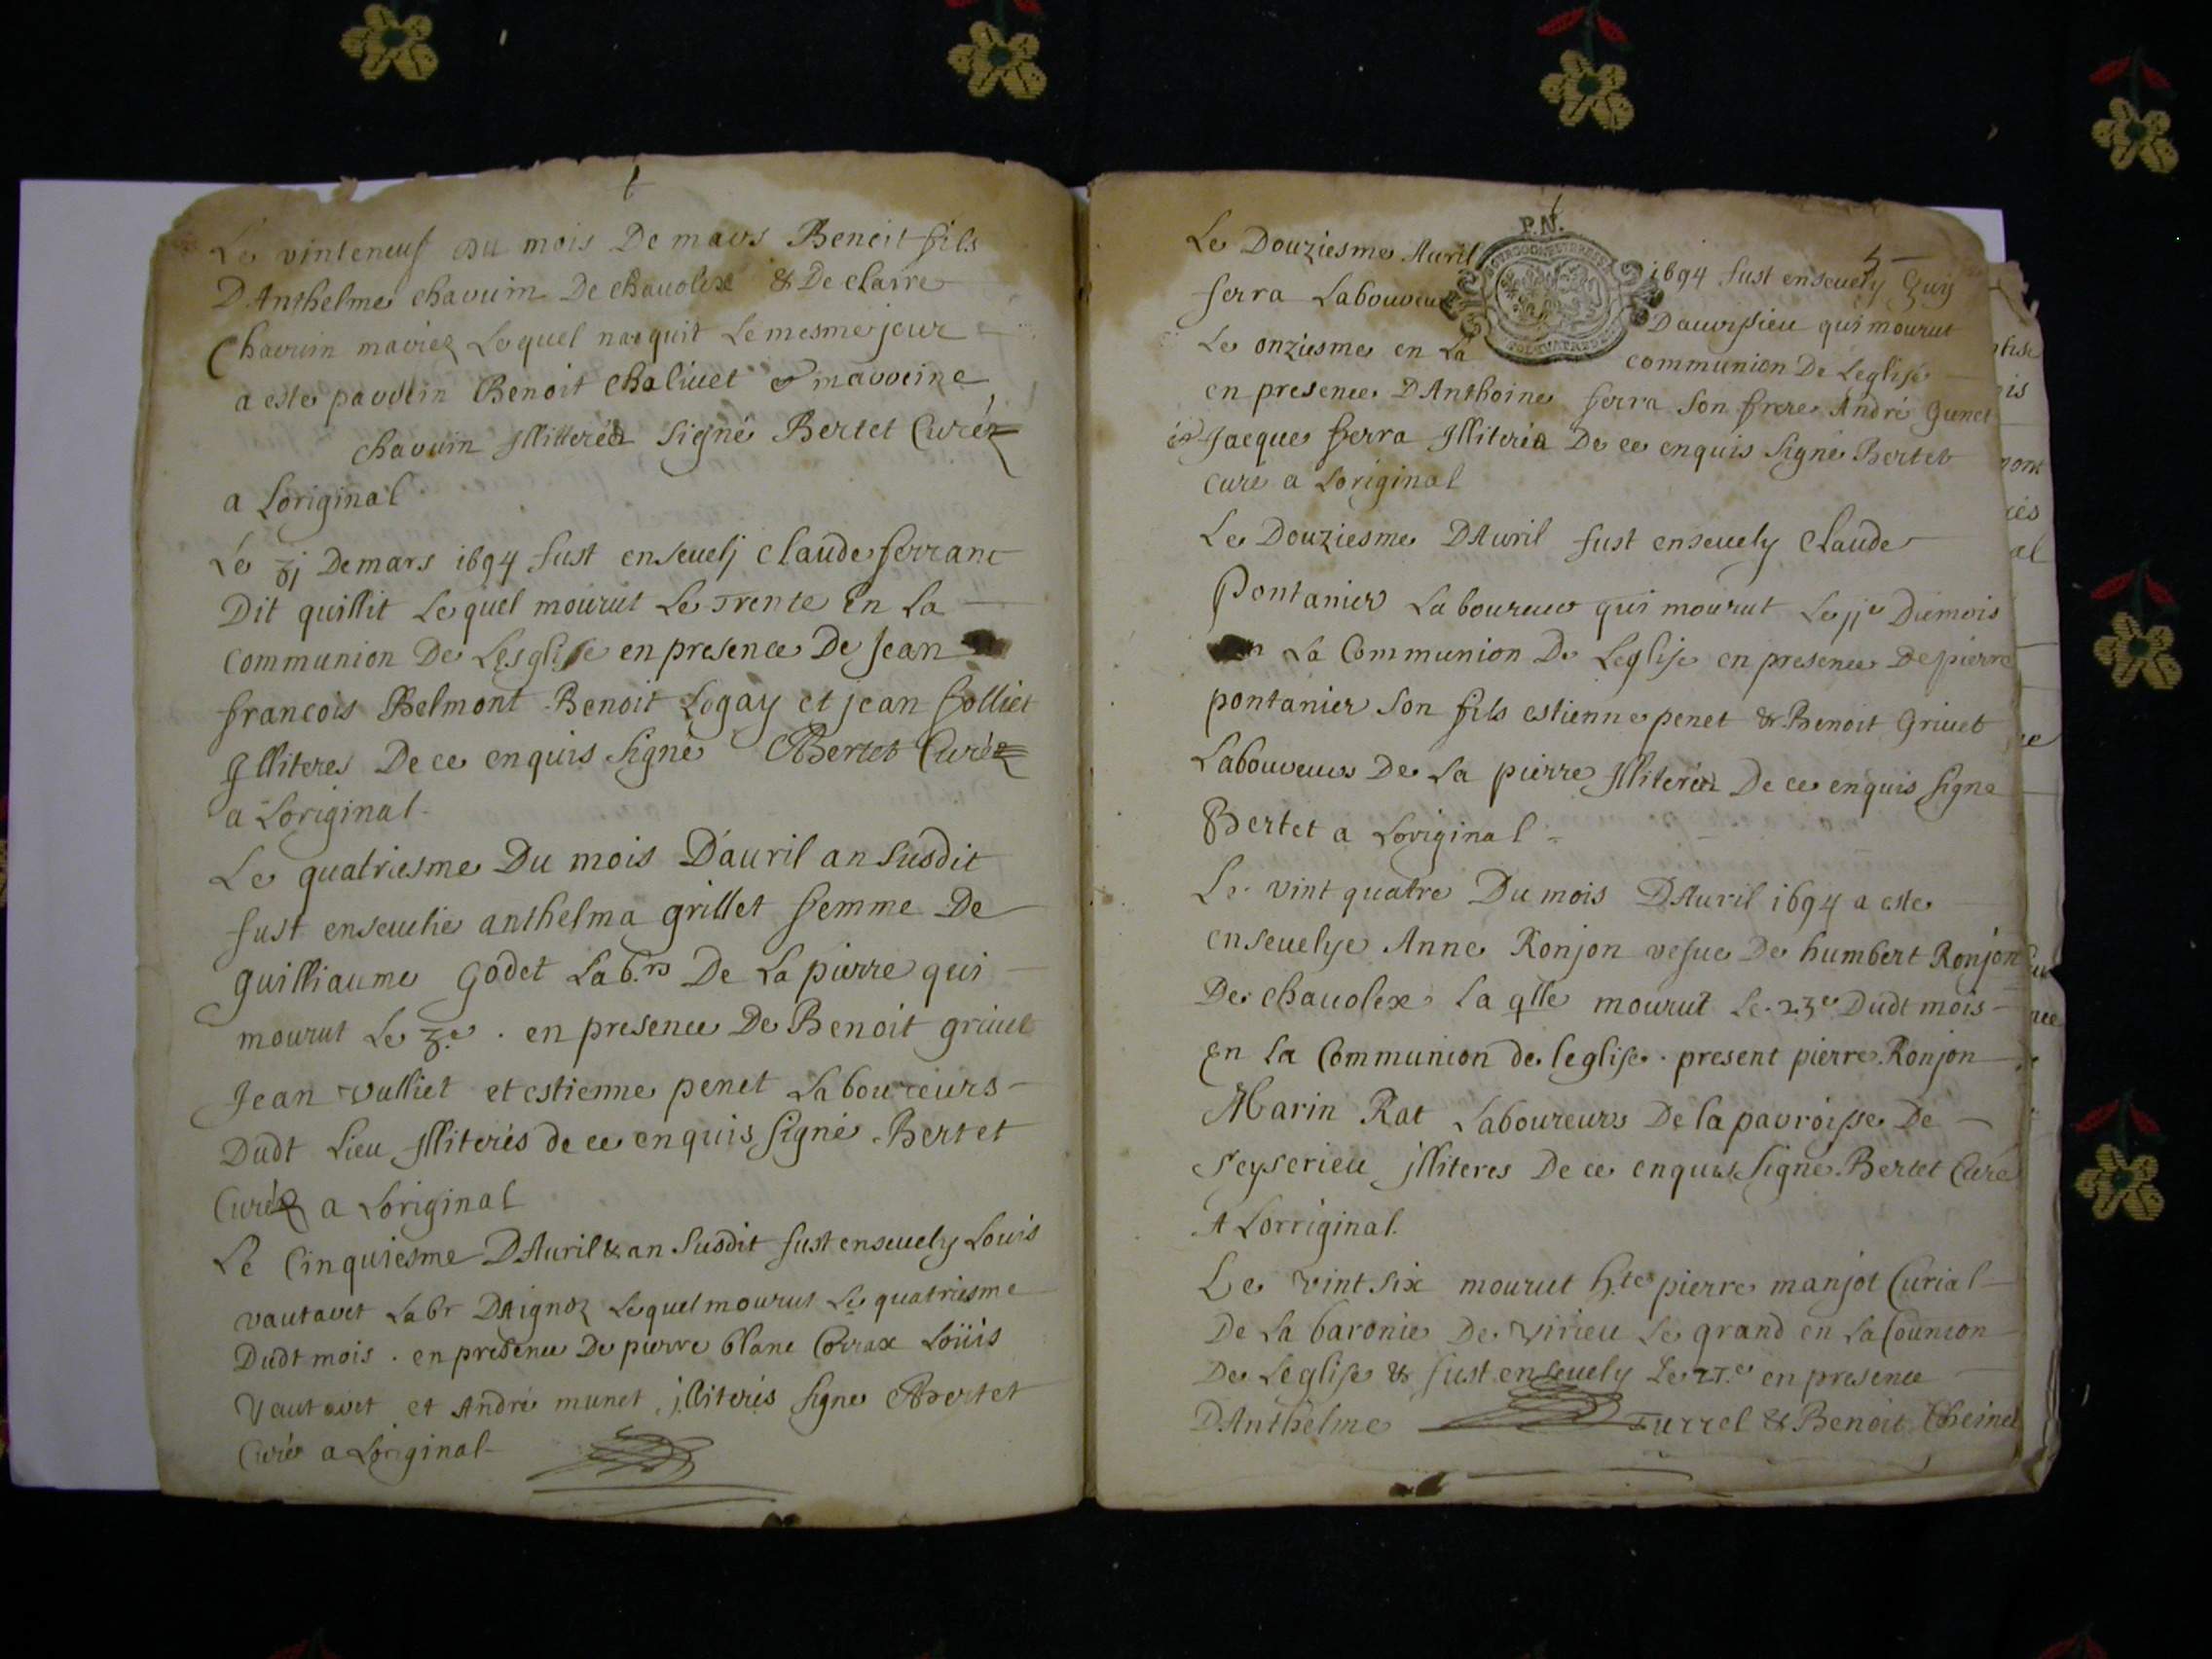 Le vinteneuf du mois De mars Benoit fils
D'Anthelme chavuin De chavolex & De claire
Chavuin mariez Lequel nasquit Le mesme jour
a este parrin Benoit chalivet & marreine
chavuin Illitteréz Signé Bertet Curéz
a Loriginal
Le 31 De mars 1694 fust ensevelj claude ferrant
Dit quillit Lequel mourut Le Trente En La
communion De Lesglise en presence De Jean
francois Belmont Benoit Logay et jean folliet
Illiteres De ce enquis Signé Bertet Curéz
a Loriginal
Le quatriesme Du mois D'auril an Susdit
fust ensevelie anthelma grillet femme De
guilliaume Godet Lab.rs De La pierre qui
mourut Le 3.e . en presence De Benoit griuet
Jean vulliet et estienne penet Laboureurs
Dudt Lieu Illiterés de ce enquis Signé Bertet
Curéz a Loriginal
Le Cinquiesme D'Auril & an Susdit fust ensevely Louis
vautaret Labr D'Aignoz Lequel mourut Le quatriesme
Dudt mois . en presence De pierre blanc Corrax Loüis
Vautaret et André munet illiterés Signe Bertet
Curéz a Loriginal
P.N.
5
Le Douziesme Auril 1694 fust ensevely Guy
ferra Laboureur Daursieu qui mourut
Le onziesme en La communion De Leglise
en presence D'Anthoine ferra Son frere André Gunet
& Jacque ferra Illiteréz De ce enquis Signé Bertet
curé a Loriginal
Le Douziesme D'Auril fust ensevely Claude
Pontanier Laboureur qui mourut Le 11e Du mois
en La Communion De Leglise en presence De pierre
pontanier Son fils estienne penet & Benoit Griuet
Laboureurs De La pierre Illiteréz De ce enquis Signe
Bertet a Loriginal
Le vint quatre Du mois D'Auril 1694 a este
ensevelye Anne Ronjon vefue De humbert Ronjon
De chavolex La qlle mourut Le 23e Dudt mois
En La Communion de leglise . present pierre Ronjon
Marin Rat Laboureurs De la parroisse De
Seyserieu illiteres De ce enquis Signe Bertet Curé
A Lorriginal.
Le vint six mourut h.te pierre manjot Curial
De La baronie De Virieu Le grand en La Counion
De Leglise & fust ensevely Le 27.e en presence
D'Anthelme Turrel & Benoit Cheinel